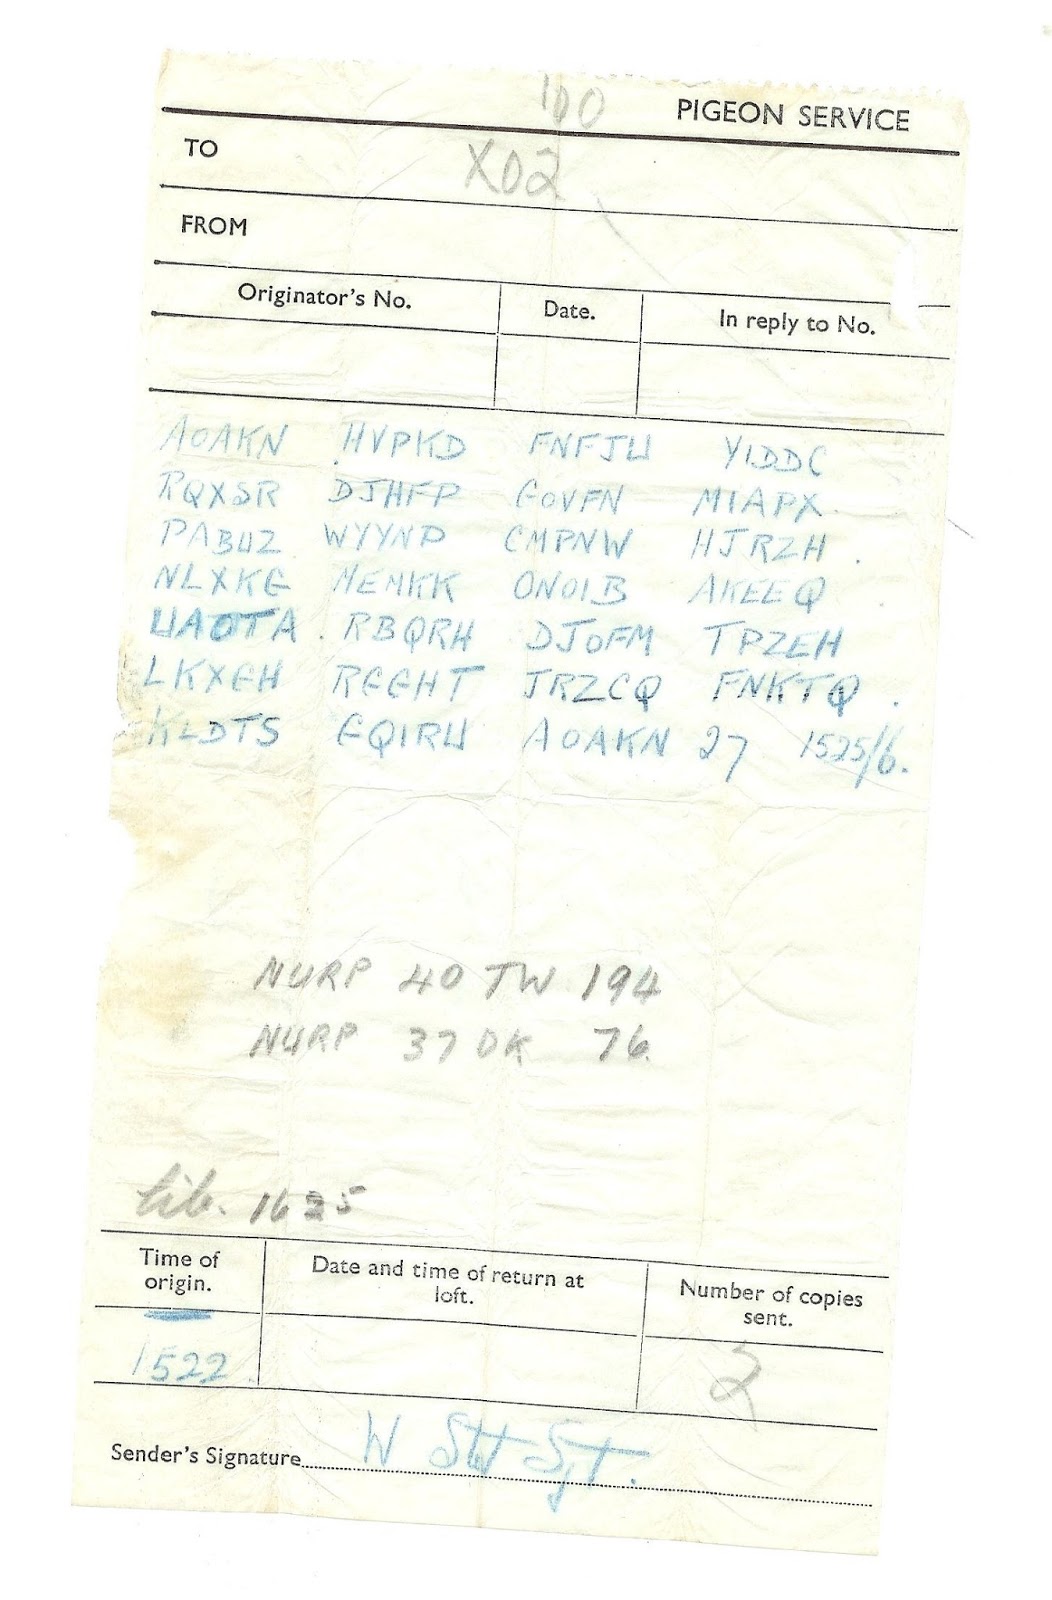 100 PIGEON SERVICE
TO XO2
FROM
Originator's No. Date. In reply to No.
AOAKN HVPKD FNFJU YIDDC
RQXSR DJHFP GOVFN MIAPX
PABUZ WYYNP CMPNW HJRZH
NLXKG MEMKK ONOIB AKEEQ
UAOTA RBQRH DJOFM TPZEH
LKXGH RGGHT JRZCQ FNKTQ
KLDTS GQIRU AOAKN 27 1525/6.
NURP 40 TW 194
NURP 37 DK 76
lib. 1625
Time of origin. Date and time of return at loft. Number of copies sent.
1522 2
Sender's Signature W Stot Sjt.